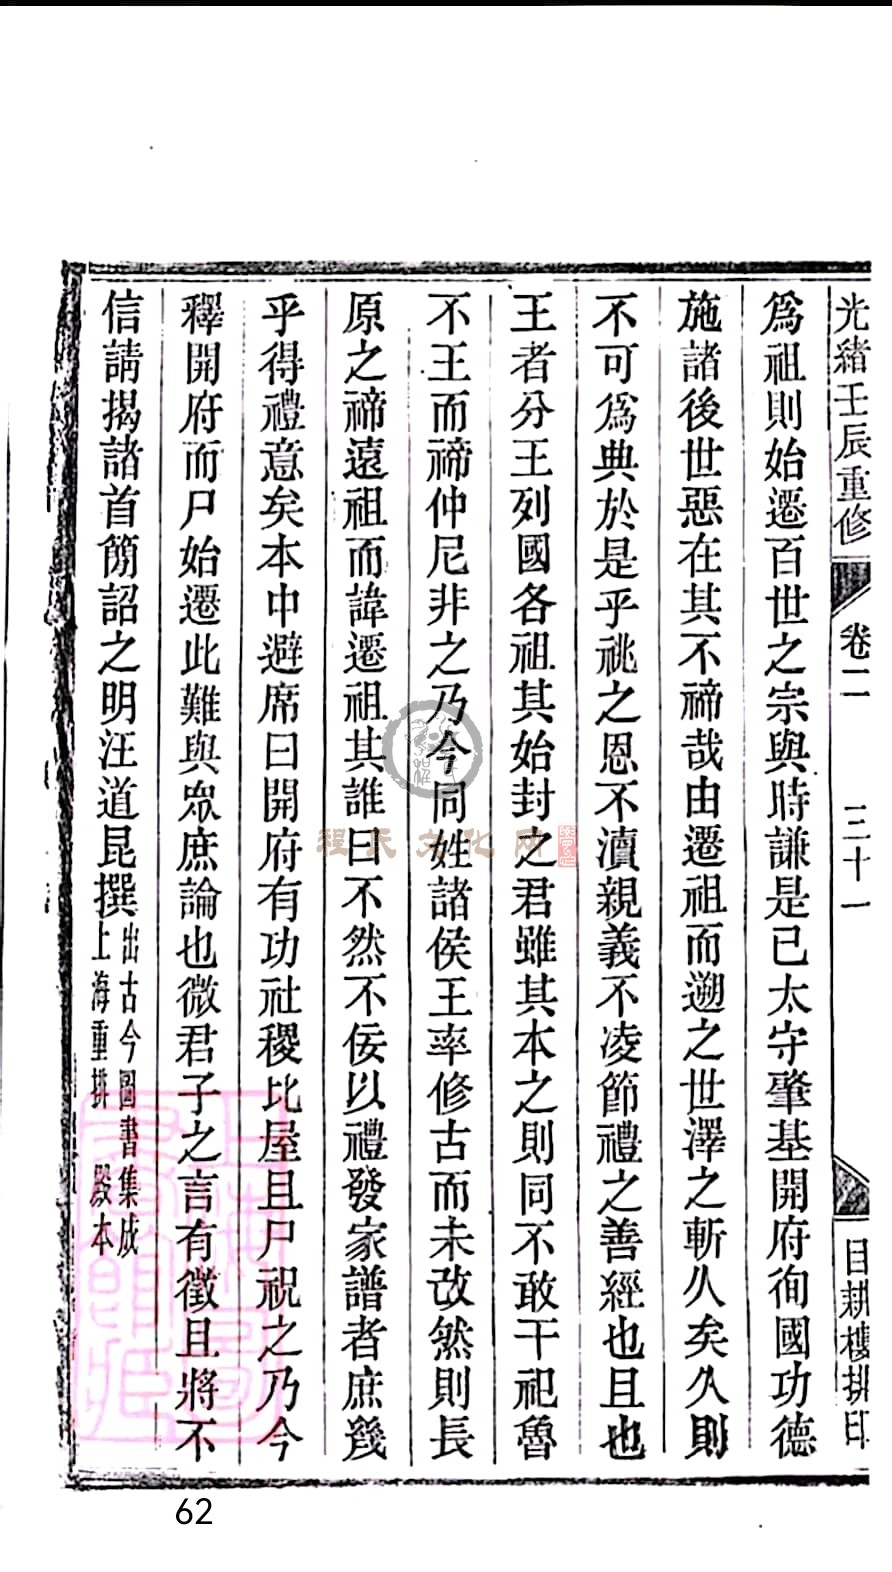 光緒壬辰重修 卷二 三十一 目耕樓排印
爲祖則始遷百世之宗與時謙是已太守肇基開府徇國功德
施諸後世惡在其不禘哉由遷祖而遡之世澤之斬久矣久則
不可爲典於是乎祧之恩不瀆親義不凌節禮之善經也且也
王者分王列國各祖其始封之君雖其本之則同不敢干祀魯
不王而禘仲尼非之乃今同姓諸侯王率修古而未改然則長
原之禘遠祖而諱遷祖其誰曰不然不佞以禮發家譜者庶幾
乎得禮意矣本中避席曰開府有功社稷比屋且尸祝之乃今
釋開府而尸始遷此難與眾庶論也微君子之言有徵且將不
信請揭諸首簡詔之明汪道昆撰
出古今圖書集成
上海重排 殿本
程氏文化网
62